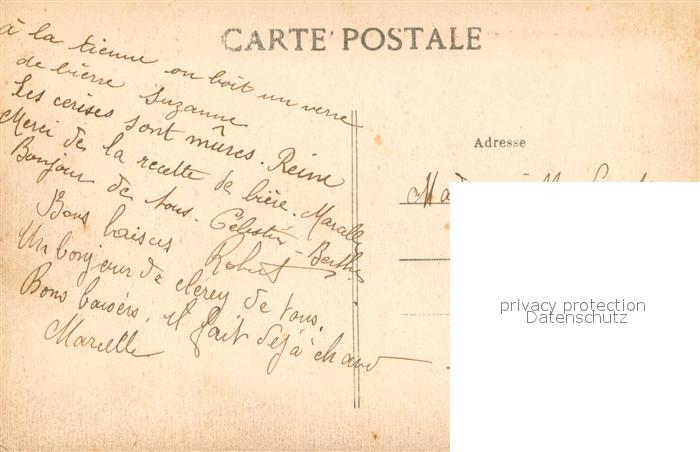 CARTE POSTALE
à la tienne on boit un verre
de bierre Suzanne
Les cerises sont mûres. Reine
Merci des la recette de bière. Marcelle
Bonjour de tous. Célestin - Berthe
Bons baisers Robert
Un bonjour de clérey de tous.
Bons baisers, il fait déjà chaud
Marcelle
Adresse
privacy protection
Datenschutz